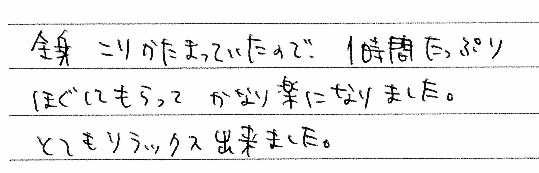 全身 こりかたまっていたので、1時間たっぷり
ほぐしてもらって かなり楽になりました。
とてもリラックス出来ました。